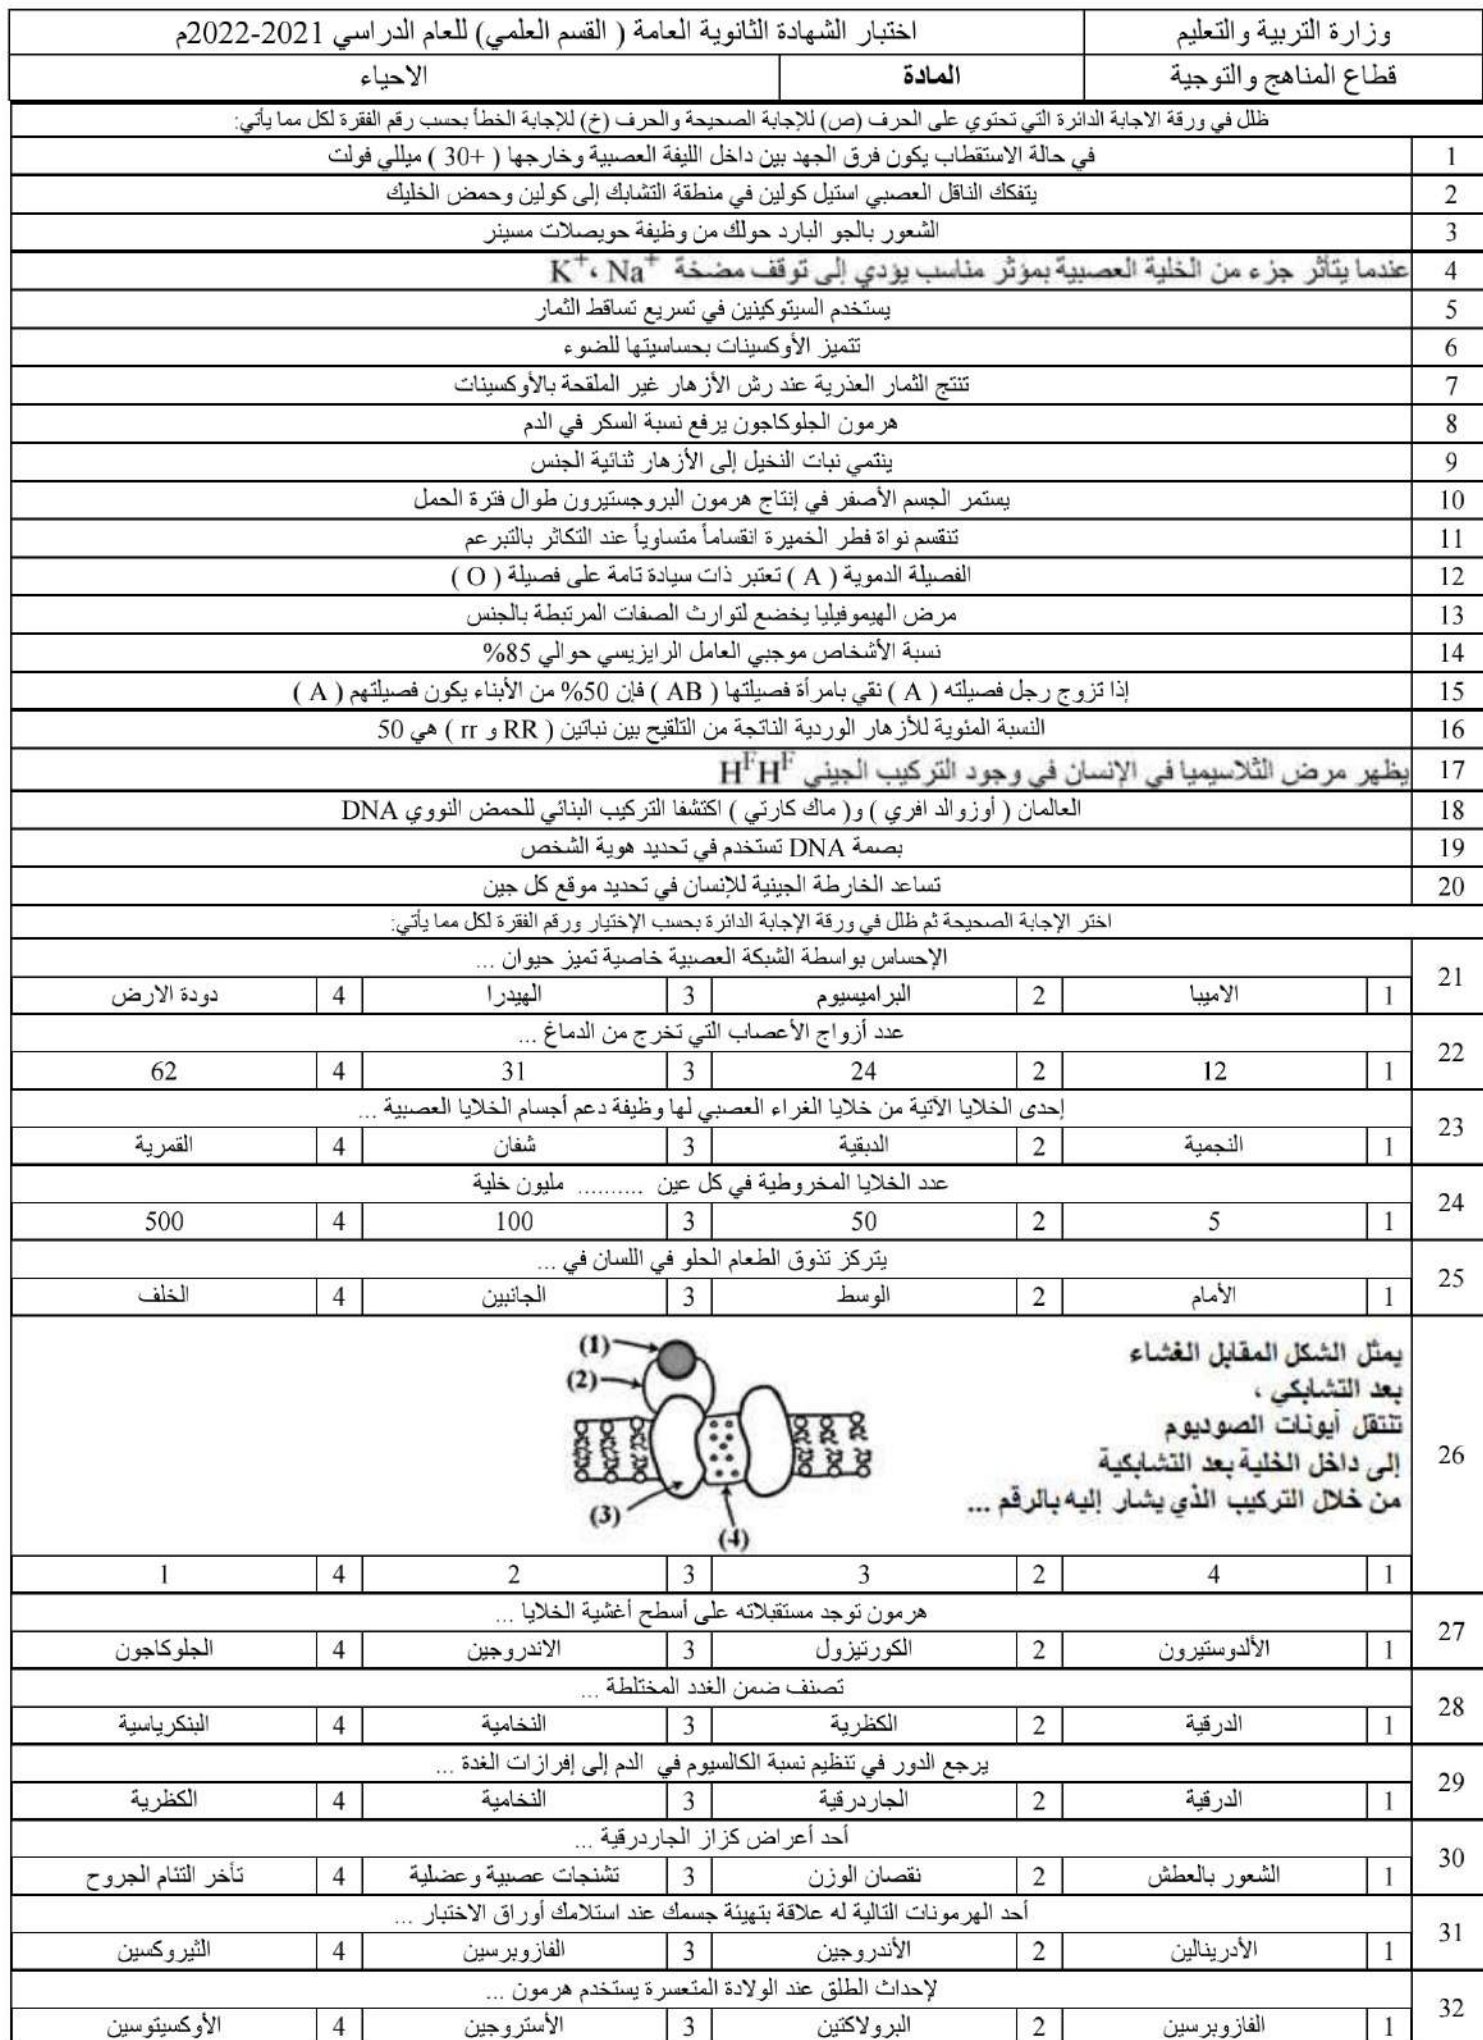 وزارة التربية والتعليم
اختبار الشهادة الثانوية العامة ( القسم العلمي) للعام الدراسي 2021-2022م
قطاع المناهج والتوجية
المادة
الاحياء
ظلل في ورقة الاجابة الدائرة التي تحتوي على الحرف (ص) للإجابة الصحيحة والحرف (خ) للإجابة الخطأ بحسب رقم الفقرة لكل مما يأتي:
1 في حالة الاستقطاب يكون فرق الجهد بين داخل الليفة العصبية وخارجها ( +30 ) ميللي فولت
2 يتفكك الناقل العصبي استيل كولين في منطقة التشابك إلى كولين وحمض الخليك
3 الشعور بالجو البارد حولك من وظيفة حويصلات مسينر
4 عندما يتأثر جزء من الخلية العصبية بمؤثر مناسب يؤدي إلى توقف مضخة K⁺، Na⁺
5 يستخدم السيتوكينين في تسريع تساقط الثمار
6 تتميز الأوكسينات بحساسيتها للضوء
7 تنتج الثمار العذرية عند رش الأزهار غير الملقحة بالأوكسينات
8 هرمون الجلوكاجون يرفع نسبة السكر في الدم
9 ينتمي نبات النخيل إلى الأزهار ثنائية الجنس
10 يستمر الجسم الأصفر في إنتاج هرمون البروجستيرون طوال فترة الحمل
11 تنقسم نواة فطر الخميرة انقساماً متساوياً عند التكاثر بالتبرعم
12 الفصيلة الدموية ( A ) تعتبر ذات سيادة تامة على فصيلة ( O )
13 مرض الهيموفيليا يخضع لتوارث الصفات المرتبطة بالجنس
14 نسبة الأشخاص موجبي العامل الرايزيسي حوالي 85%
15 إذا تزوج رجل فصيلته ( A ) نقي بامرأة فصيلتها ( AB ) فإن 50% من الأبناء يكون فصيلتهم ( A )
16 النسبة المئوية للأزهار الوردية الناتجة من التلقيح بين نباتين ( RR و rr ) هي 50
17 يظهر مرض الثلاسيميا في الإنسان في وجود التركيب الجيني HᶠHᶠ
18 العالمان ( أوزوالد افري ) و( ماك كارتي ) اكتشفا التركيب البنائي للحمض النووي DNA
19 بصمة DNA تستخدم في تحديد هوية الشخص
20 تساعد الخارطة الجينية للإنسان في تحديد موقع كل جين
اختر الإجابة الصحيحة ثم ظلل في ورقة الإجابة الدائرة بحسب الإختيار ورقم الفقرة لكل مما يأتي:
21 الإحساس بواسطة الشبكة العصبية خاصية تميز حيوان ...
1 الاميبا 2 البراميسيوم 3 الهيدرا 4 دودة الارض
22 عدد أزواج الأعصاب التي تخرج من الدماغ ...
1 12 2 24 3 31 4 62
23 إحدى الخلايا الآتية من خلايا الغراء العصبي لها وظيفة دعم أجسام الخلايا العصبية ...
1 النجمية 2 الدبقية 3 شفان 4 القمرية
24 عدد الخلايا المخروطية في كل عين .......... مليون خلية
1 5 2 50 3 100 4 500
25 يتركز تذوق الطعام الحلو في اللسان في ...
1 الأمام 2 الوسط 3 الجانبين 4 الخلف
26 يمثل الشكل المقابل الغشاء
بعد التشابكي ،
تنتقل أيونات الصوديوم
إلى داخل الخلية بعد التشابكية
من خلال التركيب الذي يشار إليه بالرقم ...
(1)
(2)
(3)
(4)
1 4 2 3 3 2 4 1
27 هرمون توجد مستقبلاته على أسطح أغشية الخلايا ...
1 الألدوستيرون 2 الكورتيزول 3 الاندروجين 4 الجلوكاجون
28 تصنف ضمن الغدد المختلطة ...
1 الدرقية 2 الكظرية 3 النخامية 4 البنكرياسية
29 يرجع الدور في تنظيم نسبة الكالسيوم في الدم إلى إفرازات الغدة ...
1 الدرقية 2 الجاردرقية 3 النخامية 4 الكظرية
30 أحد أعراض كزاز الجاردرقية ...
1 الشعور بالعطش 2 نقصان الوزن 3 تشنجات عصبية وعضلية 4 تأخر التئام الجروح
31 أحد الهرمونات التالية له علاقة بتهيئة جسمك عند استلامك أوراق الاختبار ...
1 الأدرينالين 2 الأندروجين 3 الفازوبرسين 4 الثيروكسين
32 لإحداث الطلق عند الولادة المتعسرة يستخدم هرمون ...
1 الفازوبرسين 2 البرولاكتين 3 الأستروجين 4 الأوكسيتوسين